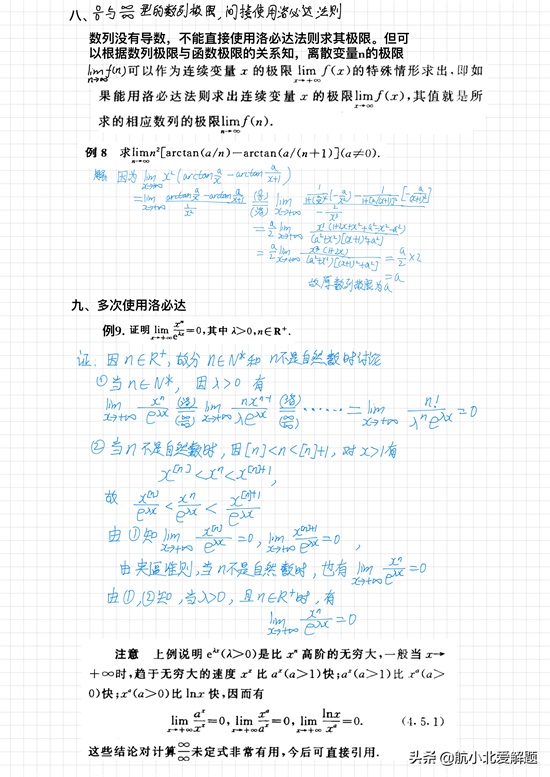 八、0/0与∞/∞型的数列极限,间接使用洛必达法则
数列没有导数，不能直接使用洛必达法则求其极限。但可
以根据数列极限与函数极限的关系知，离散变量n的极限
lim_{n→∞} f(n)可以作为连续变量 x 的极限 lim_{x→+∞} f(x)的特殊情形求出,即如
果能用洛必达法则求出连续变量 x 的极限 lim_{x→+∞} f(x),其值就是所
求的相应数列的极限 lim_{n→∞} f(n).
例 8 求 lim_{n→∞} n²[arctan(a/n)−arctan(a/(n+1)](a≠0).
解 因为 lim_{x→+∞} x²(arctan a/x − arctan a/(x+1))
= lim_{x→+∞} (arctan a/x − arctan a/(x+1))/(1/x²) (0/0)(洛) lim_{x→+∞}
= a/2 lim_{x→+∞}
= a/2 lim_{x→+∞} x³(1+2x)/((a²+x²)[(x+1)²+a²]) = a/2 ×2
故原数列极限为a =a
九、多次使用洛必达
例9. 证明 lim_{x→+∞} xⁿ/e^{λx}=0,其中 λ>0,n∈R⁺.
证: 因 n∈R⁺, 故分 n∈N*和 n不是自然数时讨论
①当 n∈N*, 因 λ>0 有
lim_{x→+∞} xⁿ/e^{λx} (洛)(∞/∞) lim_{x→+∞} nx^{n-1}/λe^{λx} (洛)(∞/∞) …… = lim_{x→+∞} n!/λⁿe^{λx} =0
②当n不是自然数时, 因[n]<n<[n]+1, 对 x>1有
x^{[n]}<xⁿ<x^{[n]+1},
故 x^{[n]}/e^{λx} < xⁿ/e^{λx} < x^{[n]+1}/e^{λx}
由①知 lim_{x→+∞} x^{[n]}/e^{λx} =0, lim_{x→+∞} x^{[n]+1}/e^{λx} =0 ,
由夹逼准则,当n不是自然数时, 也有 lim_{x→+∞} xⁿ/e^{λx} =0
由①,②知,当λ>0, 且n∈R⁺时, 有
lim_{x→+∞} xⁿ/e^{λx} =0
注意 上例说明 e^{λx}(λ>0)是比 xⁿ 高阶的无穷大,一般当 x→
+∞时,趋于无穷大的速度 xˣ 比 aˣ(a>1)快;aˣ(a>1)比 xᵃ(a>
0)快;xᵃ(a>0)比 lnx 快,因而有
lim_{x→+∞} aˣ/xˣ=0, lim_{x→+∞} xᵃ/aˣ=0, lim_{x→+∞} lnx/xᵃ=0. (4.5.1)
这些结论对计算 ∞/∞ 未定式非常有用,今后可直接引用.
头条 @航小北爱解题